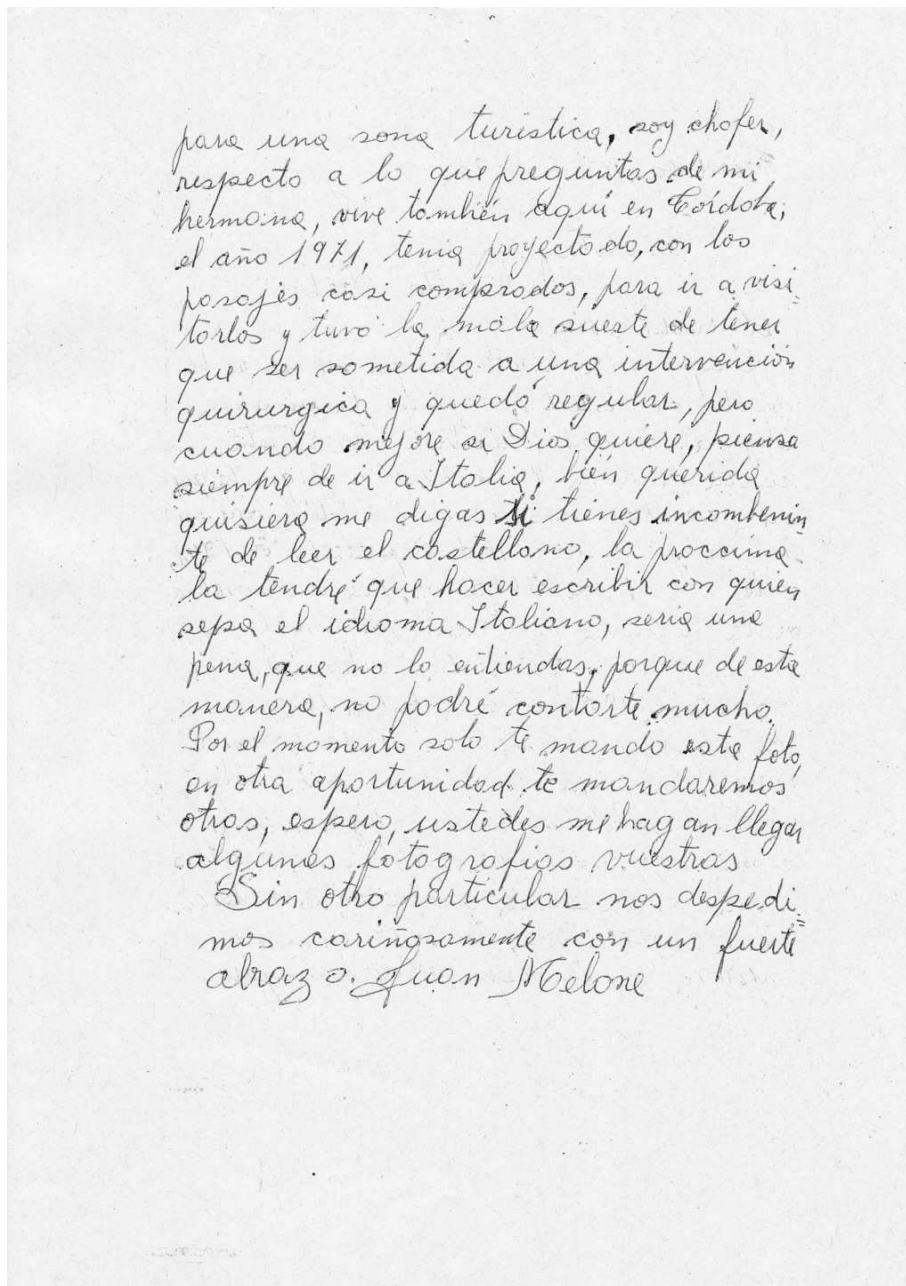 para una sona turistica, soy chofer,
respecto a lo que preguntas de mi
hermana, vive también aquí en Córdoba,
el año 1971, tenia proyectado, con los
pasajes casi comprados, para ir a visi=
tarlos y tuvo la mala sueste de tener
que ser sometida a una intervención
quirurgica y quedó regular, pero
cuando mejore si Dios quiere, piensa
siempre de ir a Italia, bién querida
quisiera me digas si tienes incombenin
te de leer el castellano, la proccima
la tendré que hacer escribir con quien
sepa el idioma Italiano, seria una
pena, que no lo entiendas, porque de esta
manera, no podré contarte mucho.
Por el momento solo te mando esta foto,
en otra aportunidad te mandaremos
otras, espero, ustedes me hagan llegar
algunas fotografias vuestras
Sin otro particular nos despedi=
mos cariñosamente con un fuerte
abrazo. Juan Melone